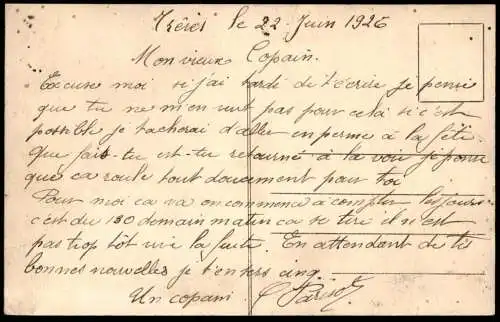 Trèves le 22 Juin 1926
Mon vieux Copain.
Excuse moi si j'ai tardé de t'écrire je pense
que tu ne m'en veut pas pour cela si c'est
possible je tacherai d'aller en perme à la fête
que fais-tu est-tu retourné à la voie je pense
que ca roule tout doucement pour toi
Pour moi ca va on commence à compter les jours
c'est du 130 demain matin ca se tire il n'est
pas trop tôt vive la fuite. En attendant de tes
bonnes nouvelles je t'en sers cinq.
Un copain